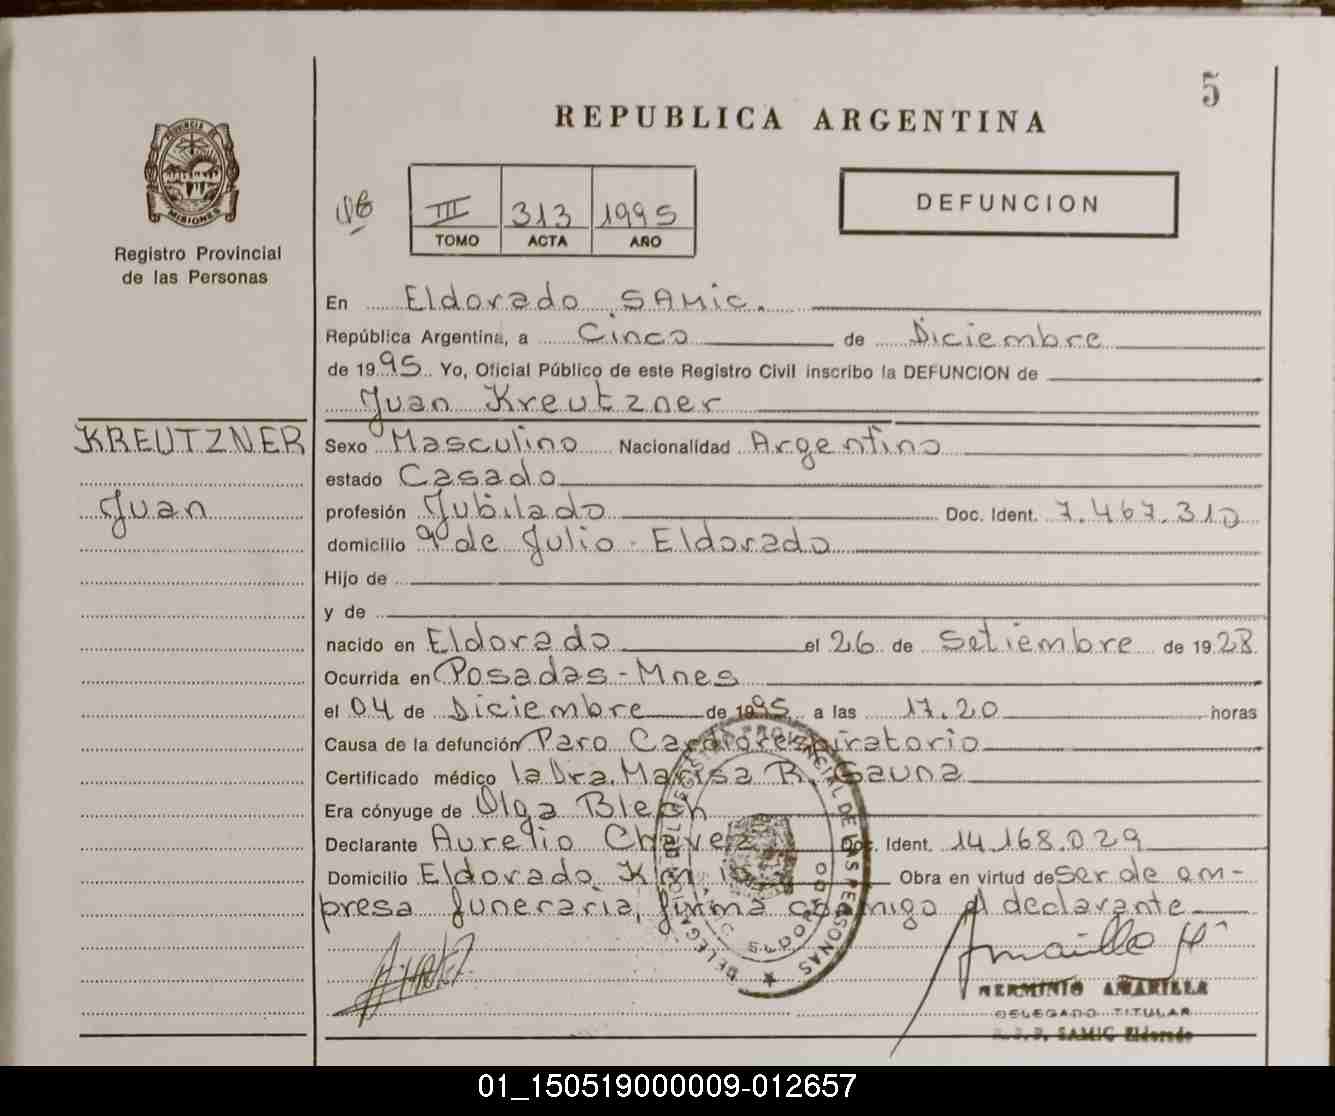 5
REPUBLICA ARGENTINA
PROVINCIA DE
MISIONES
Registro Provincial
de las Personas
III 313 1995
TOMO ACTA AÑO
DEFUNCION
En Eldorado SAMic.
República Argentina, a Cinco de Diciembre
de 1995 Yo, Oficial Público de este Registro Civil inscribo la DEFUNCION de
Juan Kreutzner
KREUTZNER
Juan
Sexo Masculino Nacionalidad Argentino
estado Casado
profesión Jubilado Doc. Ident. 7.467.310
domicilio 9 de Julio - Eldorado
Hijo de
y de
nacido en Eldorado el 26 de Setiembre de 1928
Ocurrida en Posadas - Mnes
el 04 de Diciembre de 1995 a las 17.20 horas
Causa de la defunción Paro Cardiorespiratorio
Certificado médico la Dra. Marisa R. Gauna
Era cónyuge de Olga Blech
Declarante Aurelio Chavez Doc. Ident. 14.168.029
Domicilio Eldorado Km Obra en virtud de Ser de em-
presa funeraria, firma conmigo el declarante
DELEGACION DEL REGISTRO PROVINCIAL DE LAS PERSONAS
ELDORADO
Amarilla H
HERMINIO AMARILLA
DELEGADO TITULAR
SAMIC Eldorado
01_150519000009-012657